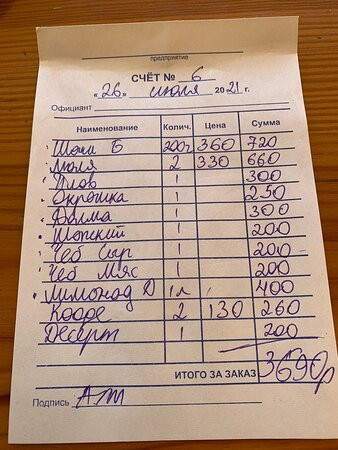 предприятие
СЧЁТ № 6
«26» июля 2021 г.
Официант
Наименование Колич. Цена Сумма
Шашл Б 200г 360 720
Люля 2 330 660
Плов 1 300
Окрошка 1 250
Долма 1 300
Шопский 1 200
Чеб Сыр 1 200
Чеб Мяс 1 200
Лимонад Д 1л 400
Кофе 2 130 260
Десерт 1 200
ИТОГО ЗА ЗАКАЗ 3690р
Подпись